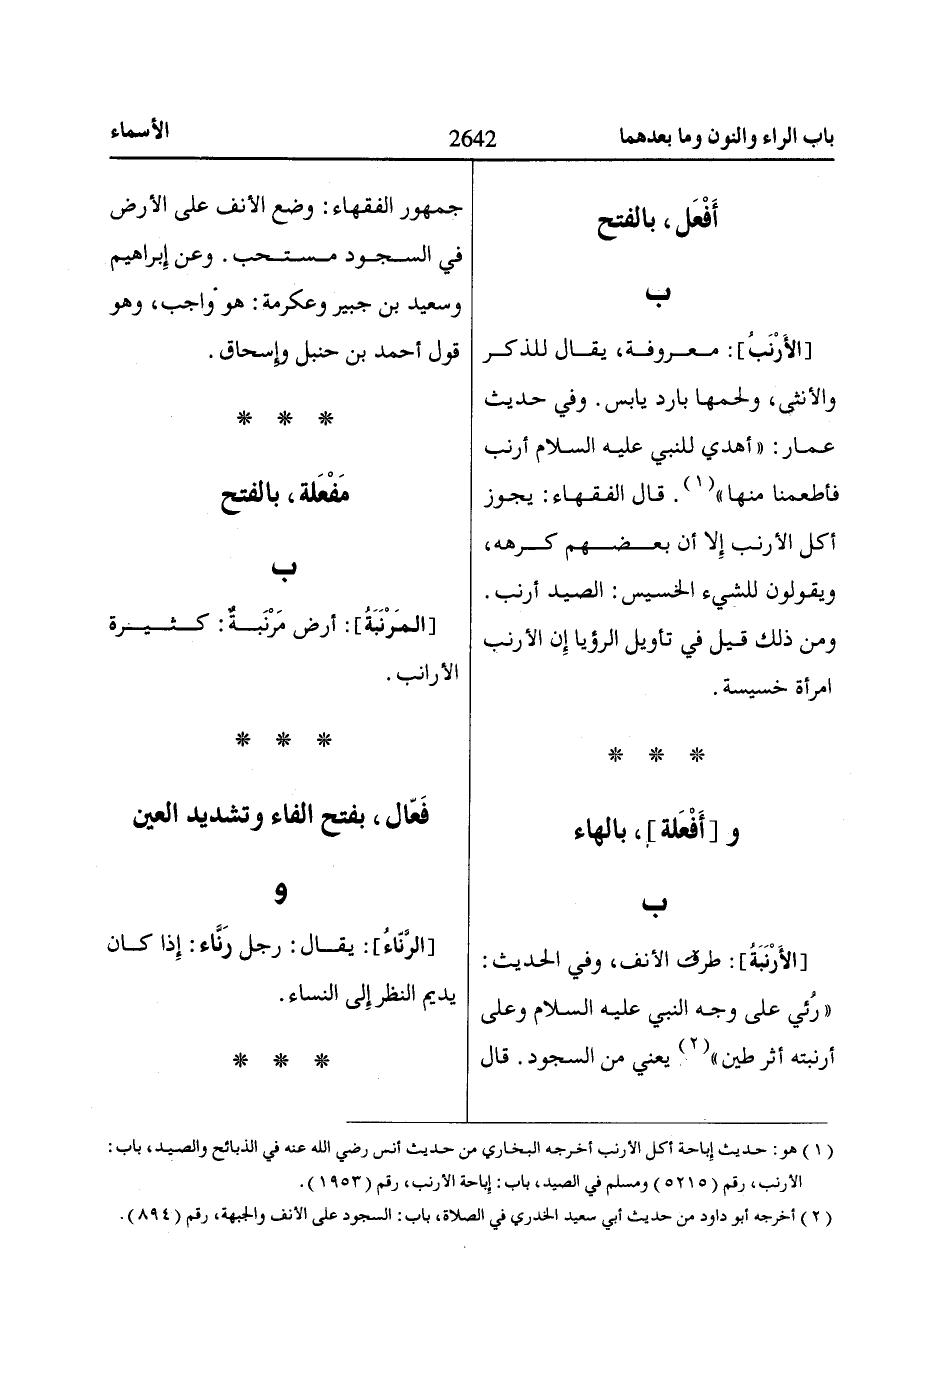 باب الراء والنون وما بعدهما
2642
الأسماء
أَفْعَل، بالفتح
ب
[الأَرْنَبُ]: معروفة، يقال للذكر
والأنثى، ولحمها بارد يابس. وفي حديث
عمار: «أهدي للنبي عليه السلام أرنب
فأطعمنا منها»(١). قال الفقهاء: يجوز
أكل الأرنب إلا أن بعضهم كرهه،
ويقولون للشيء الخسيس: الصيد أرنب.
ومن ذلك قيل في تأويل الرؤيا إن الأرنب
امرأة خسيسة.
* * *
و [أَفْعَلة]، بالهاء
ب
[الأَرْنَبَةُ]: طرف الأنف، وفي الحديث:
«رُئي على وجه النبي عليه السلام وعلى
أرنبته أثر طين»(٢) يعني من السجود. قال
جمهور الفقهاء: وضع الأنف على الأرض
في السجود مستحب. وعن إبراهيم
وسعيد بن جبير وعكرمة: هو واجب، وهو
قول أحمد بن حنبل وإسحاق.
* * *
مَفْعَلة، بالفتح
ب
[المَرْنَبَةُ]: أرض مَرْنَبَةٌ: كثيرة
الأرانب.
* * *
فَعّال، بفتح الفاء وتشديد العين
و
[الرَّنّاءُ]: يقال: رجل رَنَّاء: إذا كان
يديم النظر إلى النساء.
* * *
(١) هو: حديث إباحة أكل الأرنب أخرجه البخاري من حديث أنس رضي الله عنه في الذبائح والصيد، باب:
الأرنب، رقم (٥٢١٥) ومسلم في الصيد، باب: إباحة الأرنب، رقم (١٩٥٣).
(٢) أخرجه أبو داود من حديث أبي سعيد الخدري في الصلاة، باب: السجود على الأنف والجبهة، رقم (٨٩٤).